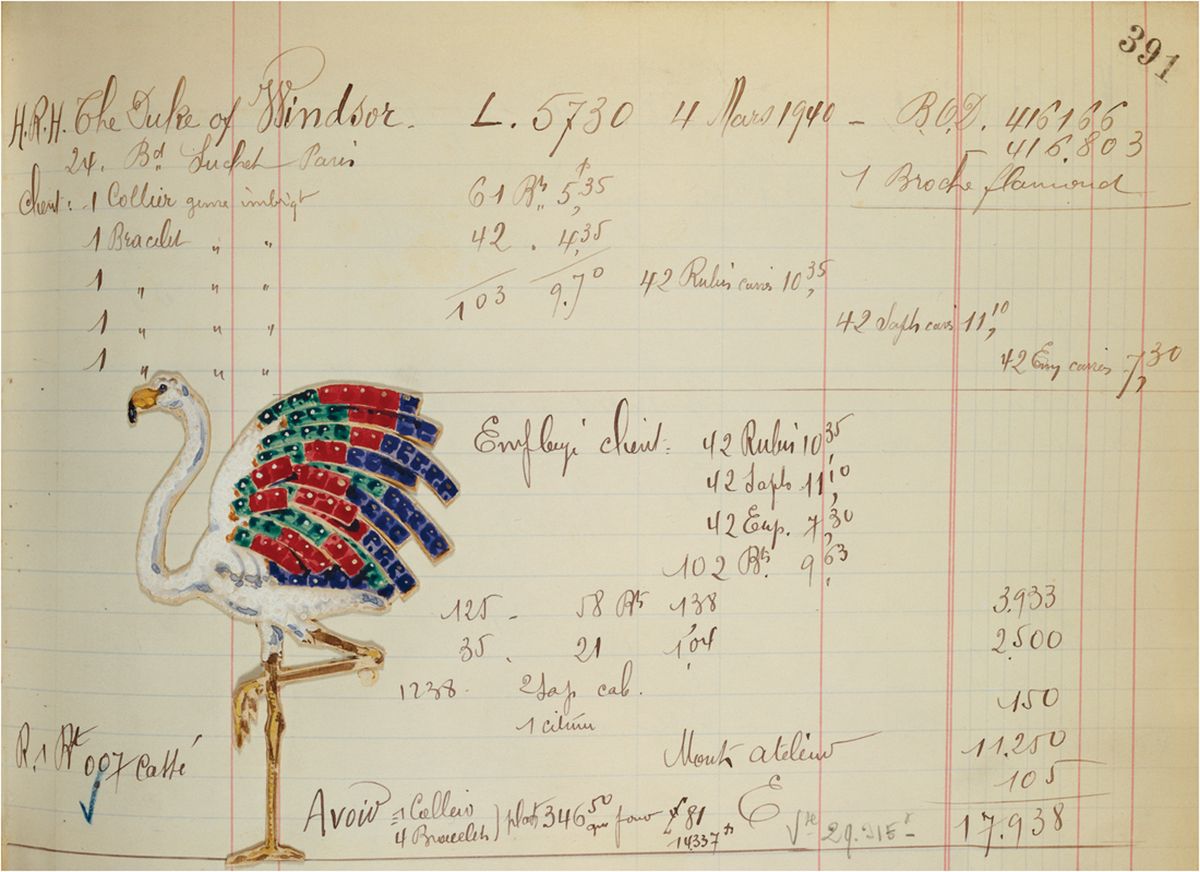 391
H.R.H. The Duke of Windsor. L. 5730 4 Mars 1940 – B.O.D. 416166
24. Bd Suchet Paris – 416.803
Client: 1 Collier genre imbriqt 61 Bts 5,35 1 Broche flamand
1 Bracelet " " 42 . 4,35
1 " " " 103 9.70 42 Rubis carrés 10,35
1 " " " 42 Saph carrés 11,10
1 " " " 42 Em carrés 7,30
Employé client: 42 Rubis 10,35
42 Saphs 11,10
42 Em. 7,30
102 Bts. 9,63
125 – 58 Bts 1,38 3.933
35 . 21 1,04 2.500
1238 – 2 Sap cab. 150
1 citrin
R. 1 Bt 007 cassé Mont. atelier 11.250
105
Avoir = 1 Collier
4 Bracelets) plat 346,50 E 29.215 17.938
81
14337